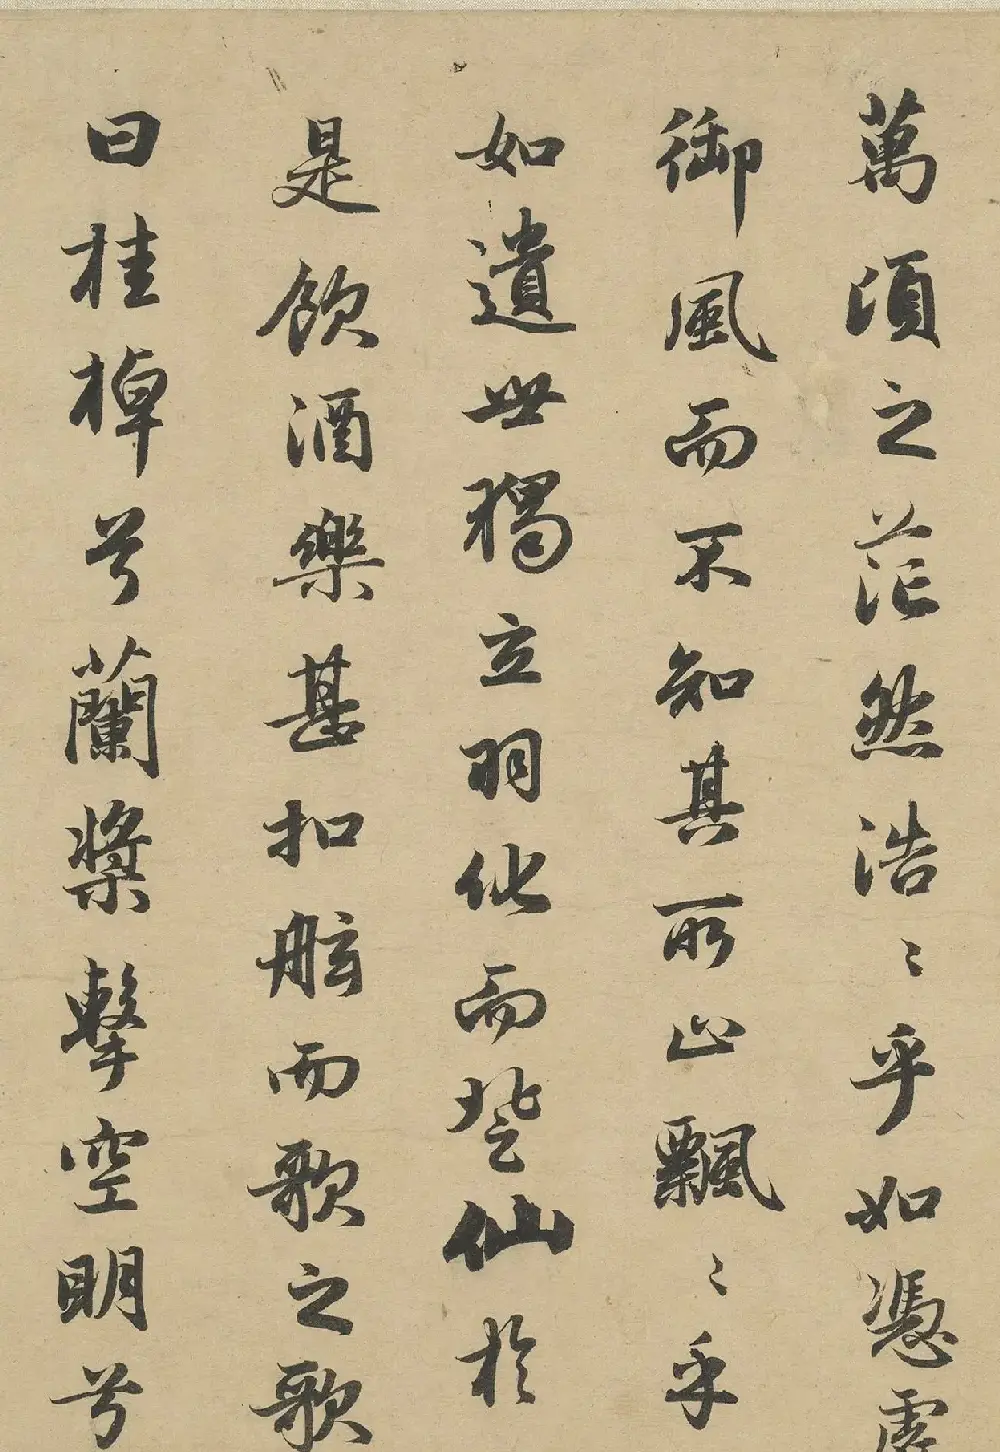 萬頃之茫然浩〻乎如憑虛
御風而不知其所止飄〻乎
如遺世獨立羽化而登仙於
是飲酒樂甚扣舷而歌之歌
曰桂棹兮蘭槳擊空明兮